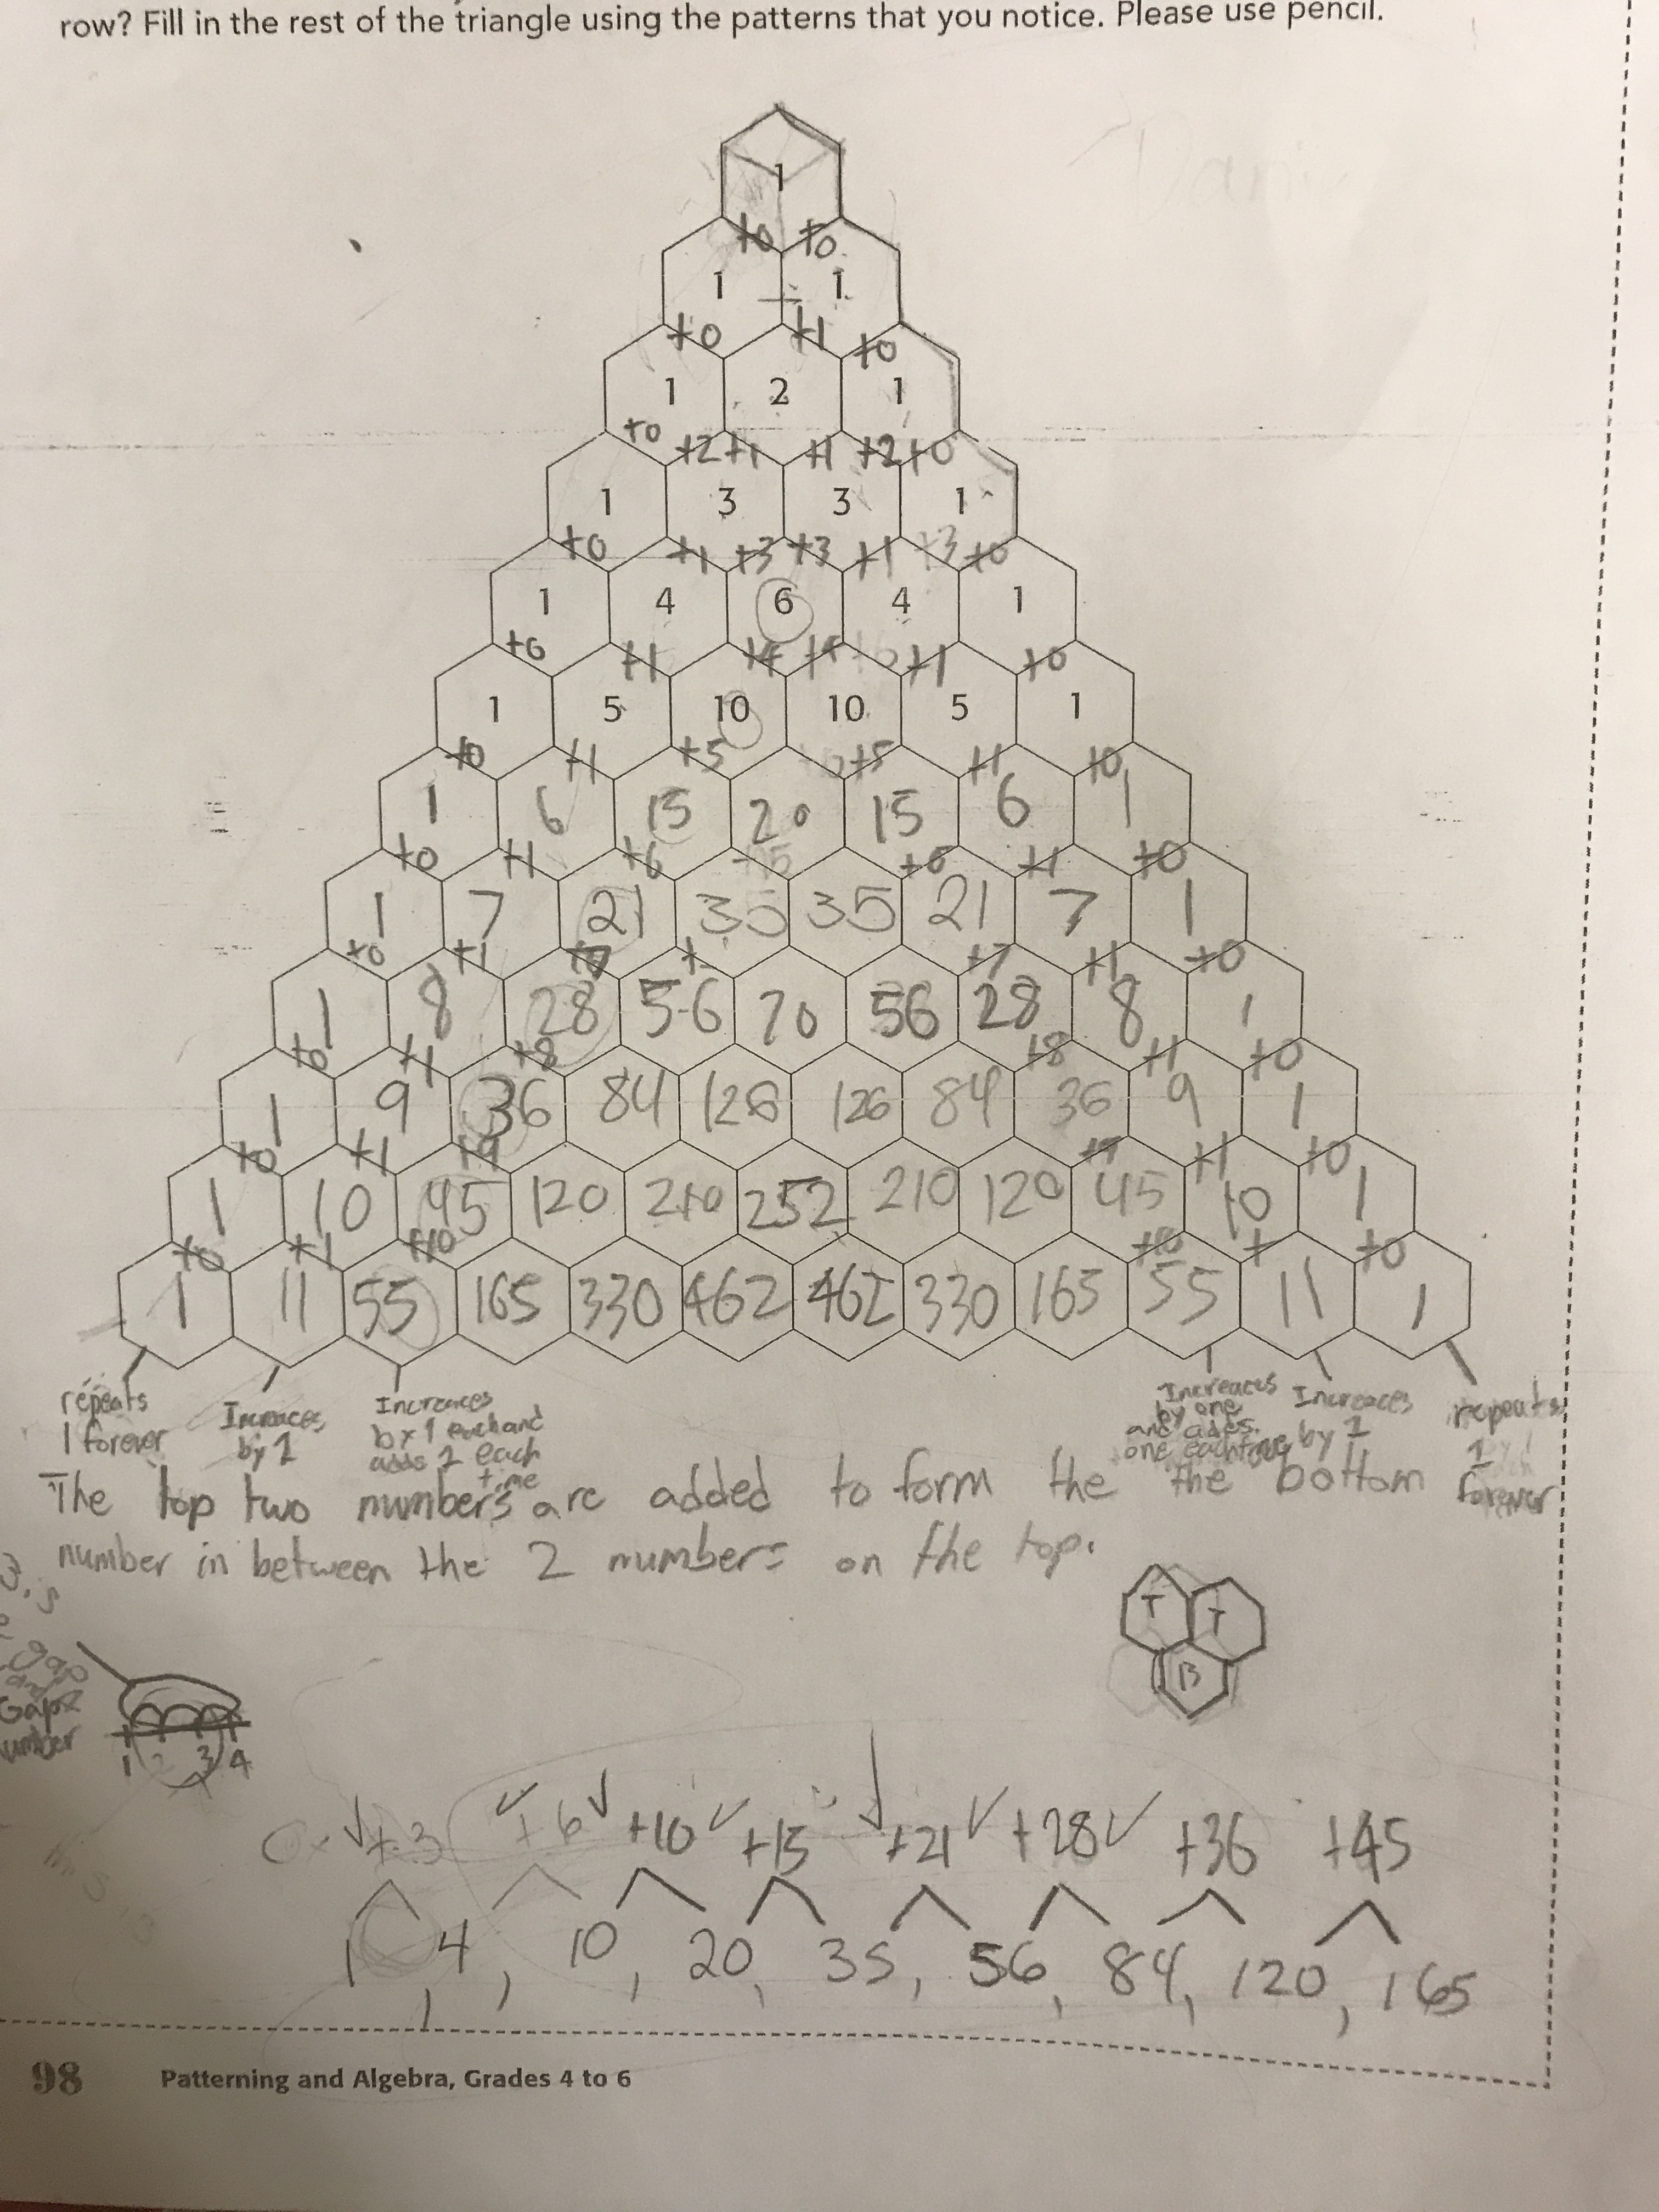 row? Fill in the rest of the triangle using the patterns that you notice. Please use pencil.
1
+0 +0
1 1
+0 +1 +0
1 2 1
+0 +2 +1 +1 +2 +0
1 3 3 1
+0 +1 +3 +3 +1 +3 +0
1 4 6 4 1
+0 +1 +4 +4 +1 +0
1 5 10 10 5 1
+0 +1 +5 +5 +1 +0
1 6 15 20 15 6 1
+0 +1 +6 +15 +6 +1 +0
1 7 21 35 35 21 7 1
+0 +1 +7 +7 +1 +0
1 8 28 56 70 56 28 8 1
+0 +1 +8 +8 +1 +0
1 9 36 84 126 126 84 36 9 1
+0 +1 +9 +9 +1 +0
1 10 45 120 210 252 210 120 45 10 1
+0 +1 +10 +10 + +0
1 11 55 165 330 462 462 330 165 55 11 1
repeats
1 forever
Increaces
by 1
Increaces
by 1 each and
adds 1 each
time
Increaces
by one
and ades
one each time
Increaces
by 1
repeats
1
forever
The top two numbers are added to form the the bottom
number in between the 2 numbers on the top.
T T
B
gap
and
Gap
number
1 2 3 4
+3 +6 +10 +15 +21 +28 +36 +45
1, 4, 10, 20, 35, 56, 84, 120, 165
98 Patterning and Algebra, Grades 4 to 6